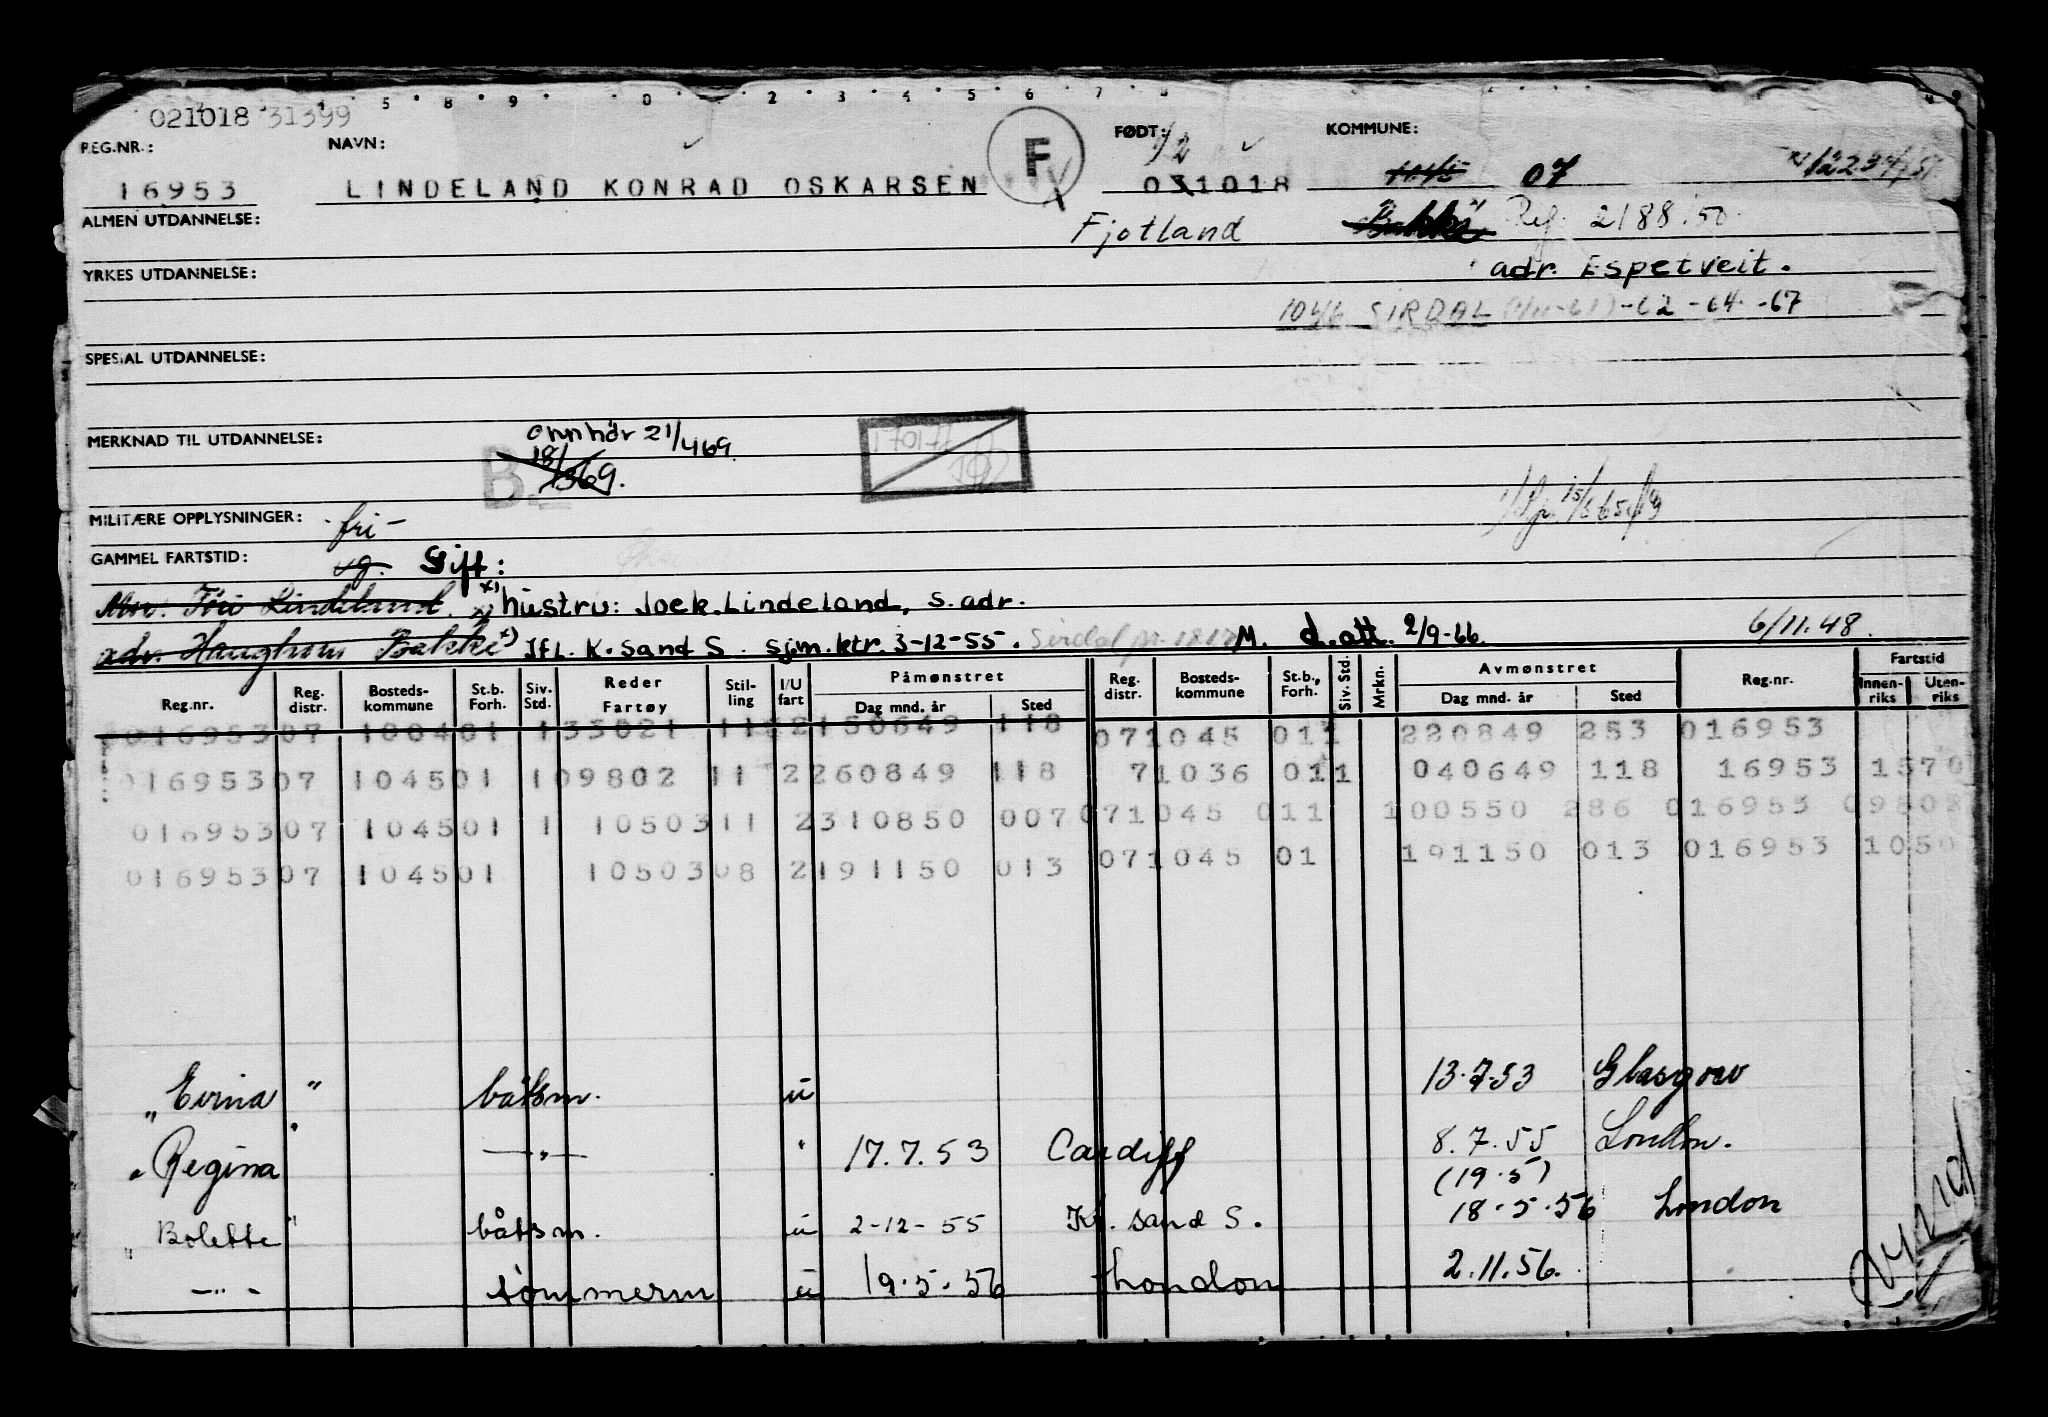 021018 31399
REG.NR.: NAVN: F FØDT: 1/2 KOMMUNE:
16953 LINDELAND KONRAD OSKARSEN 031018 07
ALMEN UTDANNELSE: Fjotland Bakke Ref. 2188/50
YRKES UTDANNELSE: adr. Espetveit.
1046 SIRDAL -62 -64 -67
SPESIAL UTDANNELSE:
MERKNAD TIL UTDANNELSE: 21/469
B. 18/369.
MILITÆRE OPPLYSNINGER: fri -
GAMMEL FARTSTID: ug. Gift:
Mor: Töri Lindeland x) hustru: Joek. Lindeland, s. adr.
adr. Haughom Bakke x) Jfl. K. sand S. sjøm.ktr. 3-12-55. M. d.att. 2/9-66. 6/11.48.
Reg.nr. Reg. distr. Bosteds- kommune St.b. Forh. Siv. Std. Reder Fartøy Stil- ling I/U fart Påmønstret Dag mnd. år Sted Reg. distr. Bosteds- kommune St.b., Forh. Siv. Std. Mrkn. Avmønstret Dag mnd. år Sted Reg.nr. Fartstid Innen- riks Uten- riks
01695307 100401 133021 11 2150849 118 071045 011 220849 253 016953
01695307 104501 109802 11 2260849 118 71036 011 040649 118 16953 1570
01695307 104501 1 1050311 2310850 007 071045 011 100550 286 016953 09808
01695307 104501 1050308 2191150 013 071045 01 191150 013 016953 1050
" Evina " båtsm. u 13.7.53 Glasgow
" Regina " —"— " 17.7.53 Cardiff 8.7.55 London.
(19.5)
" Bolette " båtsm. u 2-12-55 Kr. sand S. 18.5.56 London
—"— tømmerm u 19.5.56 London 2.11.56.